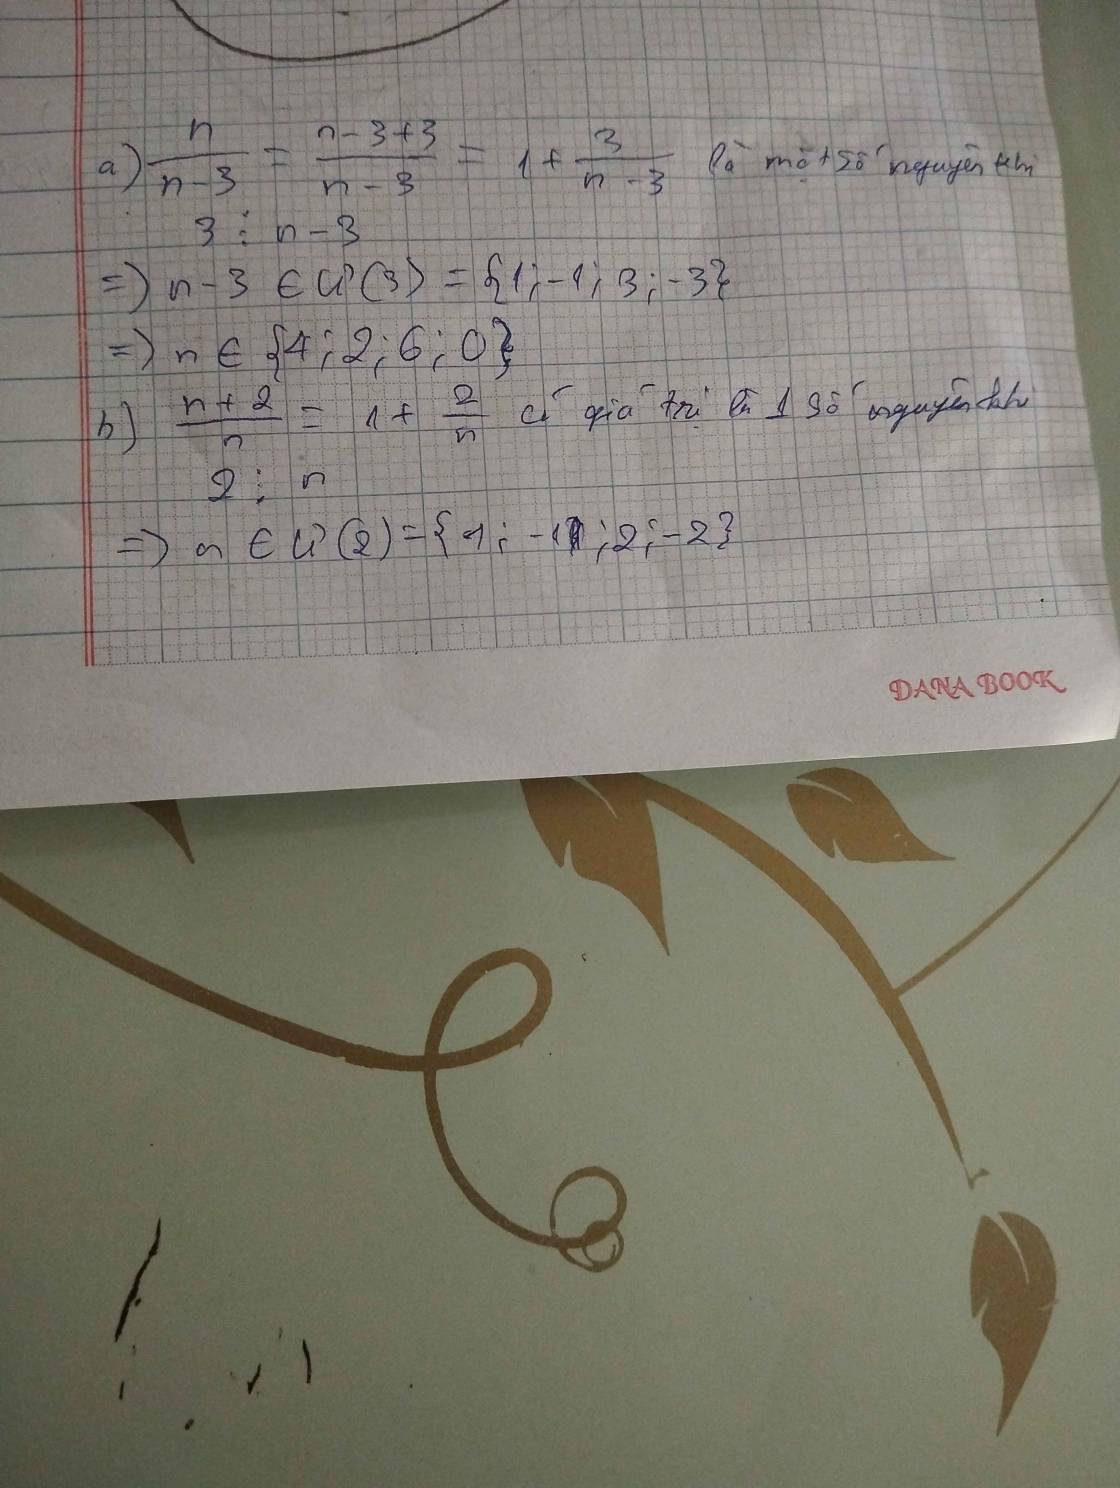 a) n/(n-3) = (n-3+3)/(n-3) = 1 + 3/(n-3) là một số nguyên khi
3 ⋮ n-3
=> n-3 ∈ Ư(3) = {1; -1; 3; -3}
=> n ∈ {4; 2; 6; 0}
b) (n+2)/n = 1 + 2/n có giá trị là 1 số nguyên khi
2 ⋮ n
=> n ∈ Ư(2) = {1; -1; 2; -2}
DANA BOOK